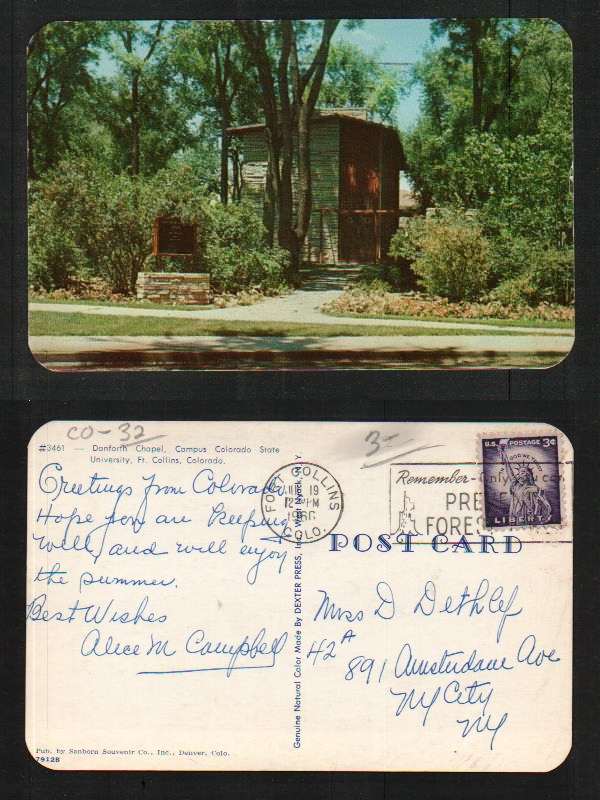 CO-32
3-
#3461 — Danforth Chapel, Campus Colorado State
University, Ft. Collins, Colorado.
Greetings from Colorado
Hope you are keeping
well, and will enjoy
the summer.
Best Wishes
Alice M Campbell
Pub. by Sanborn Souvenir Co., Inc., Denver, Colo.
7912B
Genuine Natural Color Made By DEXTER PRESS, Inc., West Nyack, N Y
FORT COLLINS
19
COLO.
Remember- Only you can
PRE
FORES
U.S. POSTAGE 3¢
IN GOD WE TRUST
LIBERTY
POST CARD
Miss D Dethlef
42A
891 Amsterdam Ave
NY City
NY